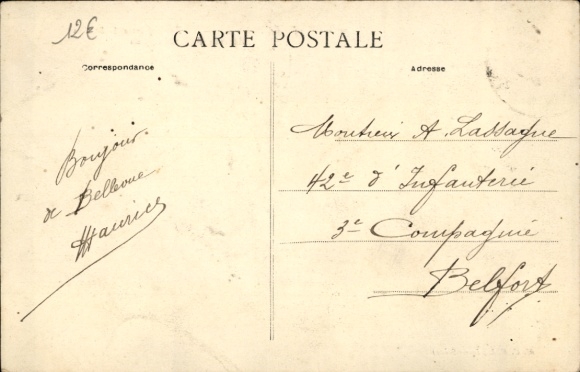 12€
CARTE POSTALE
Correspondance
Adresse
Bonjour
de Bellevue
Maurice
Monsieur A. Lassagne
42e d'Infanterie
3e Compagnie
Belfort